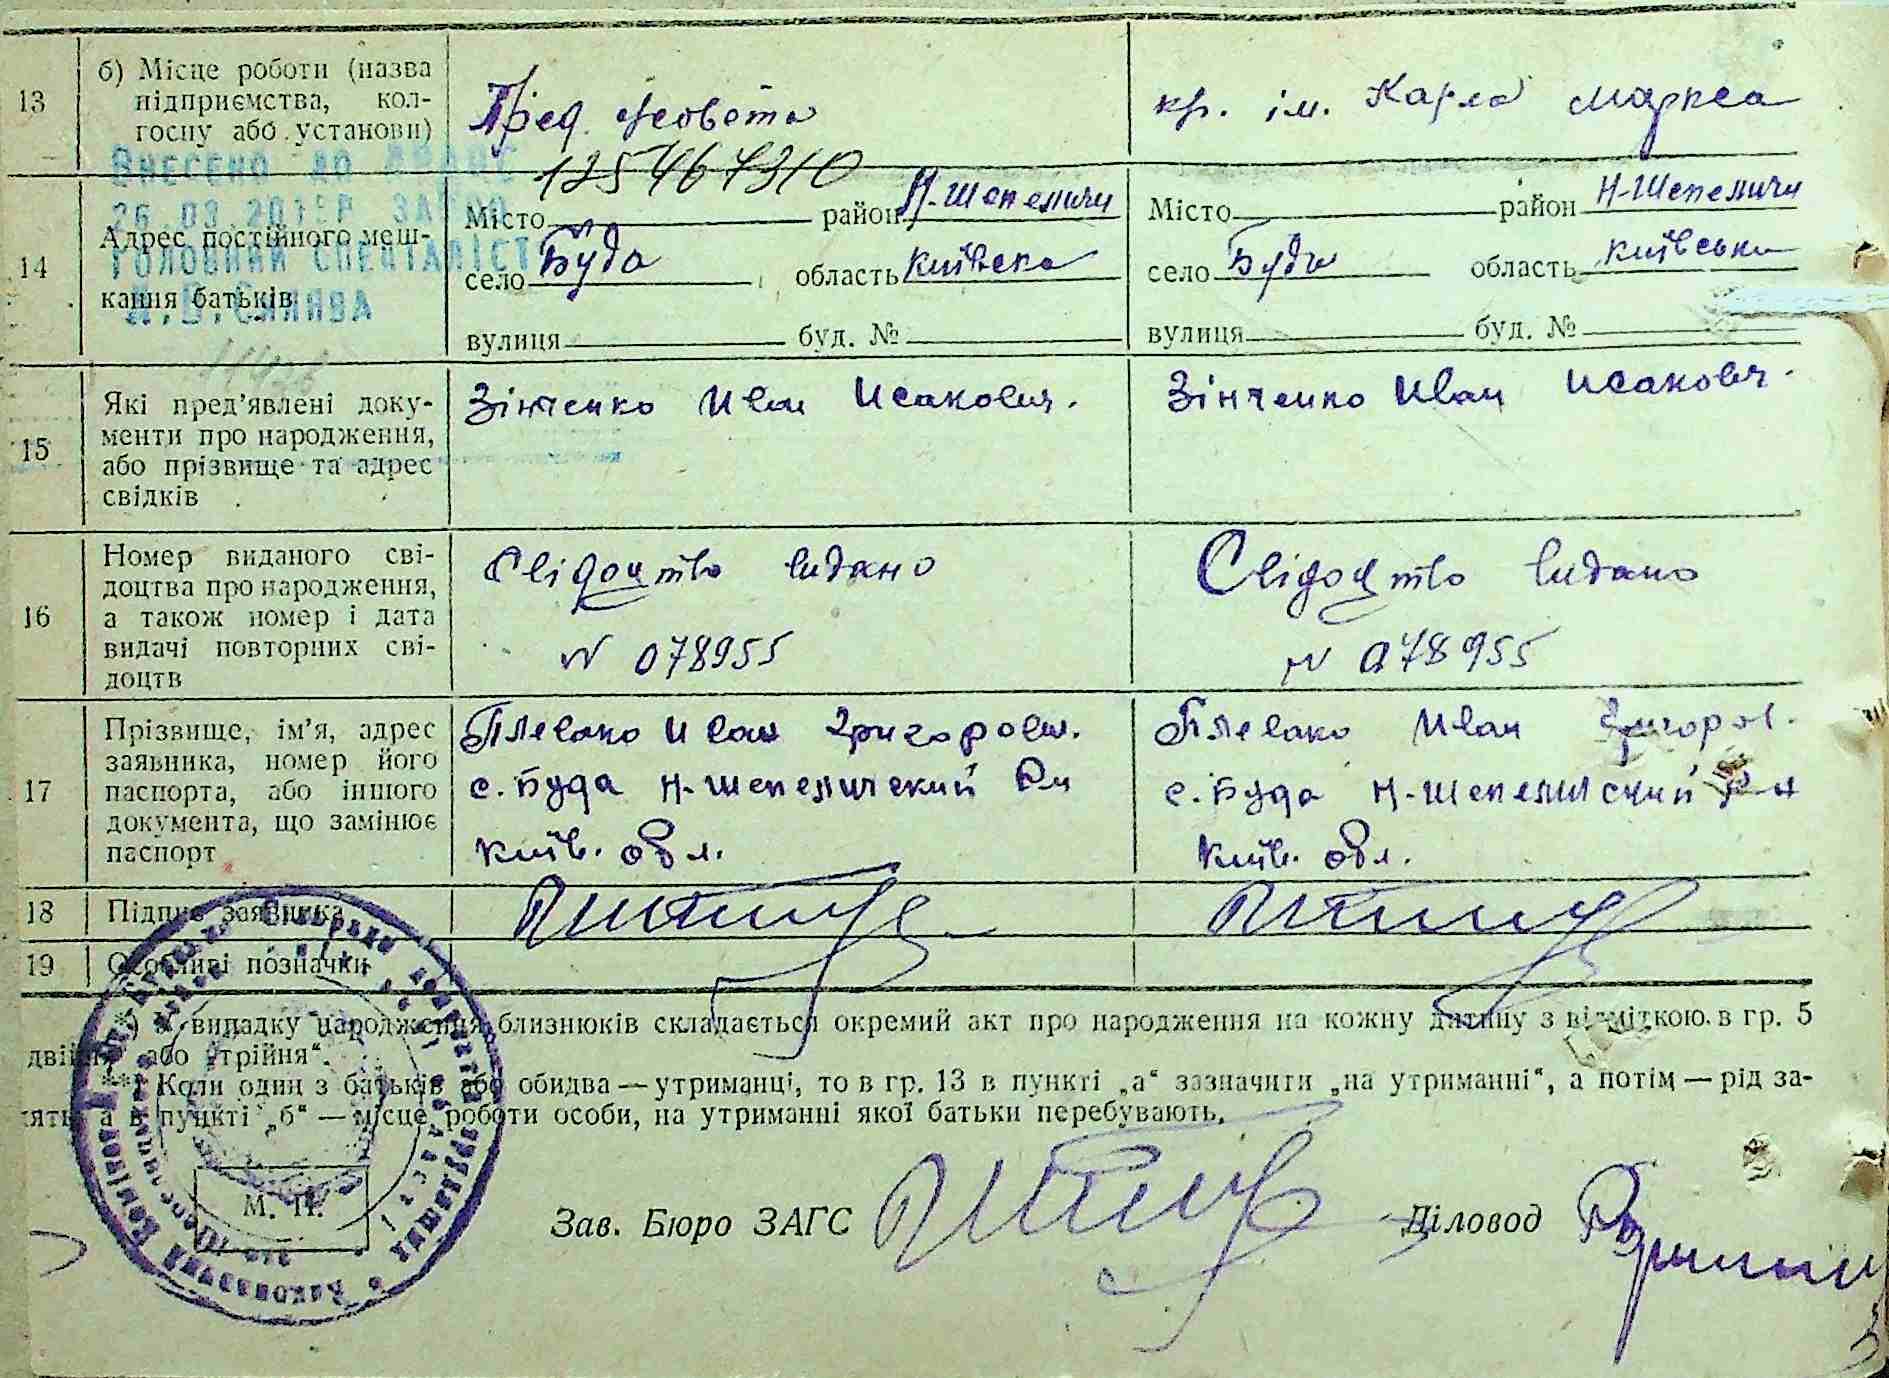 13
б) Місце роботи (назва
підприємства, кол-
госпу або установи)
Пред. с/совета
кр. ім. Карла Маркса
Внесено до ДРАЦС
125467310
14
Адрес постійного меш-
кання батьків
26 03 201
Головний спеціаліст
Місто район Н-Шепеличи
село Буда область Київска
вулиця буд. №
Місто район Н-Шепеличи
село Буда область Київська
вулиця буд. №
15
Які пред’явлені доку-
менти про народження,
або прізвище та адрес
свідків
Зінченко Иван Исакович.
Зінченко Иван Исакович.
16
Номер виданого сві-
доцтва про народження,
а також номер і дата
видачі повторних сві-
доцтв
Свідоцтво видано
N 078955
Свідоцтво видано
N 078955
17
Прізвище, ім’я, адрес
заявника, номер його
паспорта, або іншого
документа, що замінює
паспорт
Плевако Иван Григорович.
с. Буда Н-Шепеличский Р-н
Київ. обл.
Плевако Иван Григоров.
с. Буда Н-Шепеличский Р-н
Київ. обл.
18
Підпис заявника
19
Особливі позначки
*) У випадку народження близнюків складається окремий акт про народження на кожну дитину з відміткою в гр. 5
„двійня“ або „трійня“.
**) Коли один з батьків або обидва — утриманці, то в гр. 13 в пункті „а“ зазначити „на утриманні“, а потім — рід за-
нять, а в пункті „б“ — місце роботи особи, на утриманні якої батьки перебувають.
М. П.
Зав. Бюро ЗАГС
Діловод